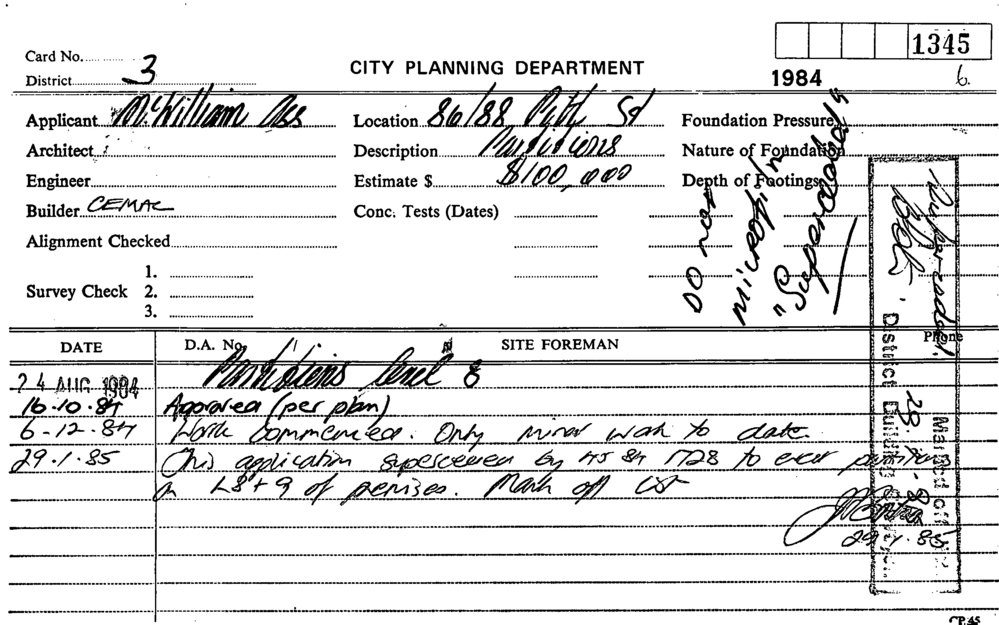 1345
Card No.
District 3
CITY PLANNING DEPARTMENT
1984
6.
Applicant McWilliam Ass
Location 86/88 Pitt St
Foundation Pressure
Architect
Description Partitions
Nature of Foundation
Engineer
Estimate $ $100,000
Depth of Footings
Builder CEMAC
Conc. Tests (Dates)
Alignment Checked
Survey Check
1.
2.
3.
DO not
microfilm
"Superceded"
DATE
D.A. No.
SITE FOREMAN
Phone
24 AUG 1984
Partitions level 8
16.10.84 Approved (per plan)
6-12-84 Work commenced. Only minor work to date.
29.1.85 This application superseded by 45 84 1728 to erect partitions
on L8+9 of premises. Mark off
29.1.85
Marked off
District Building Surveyor
CP.45